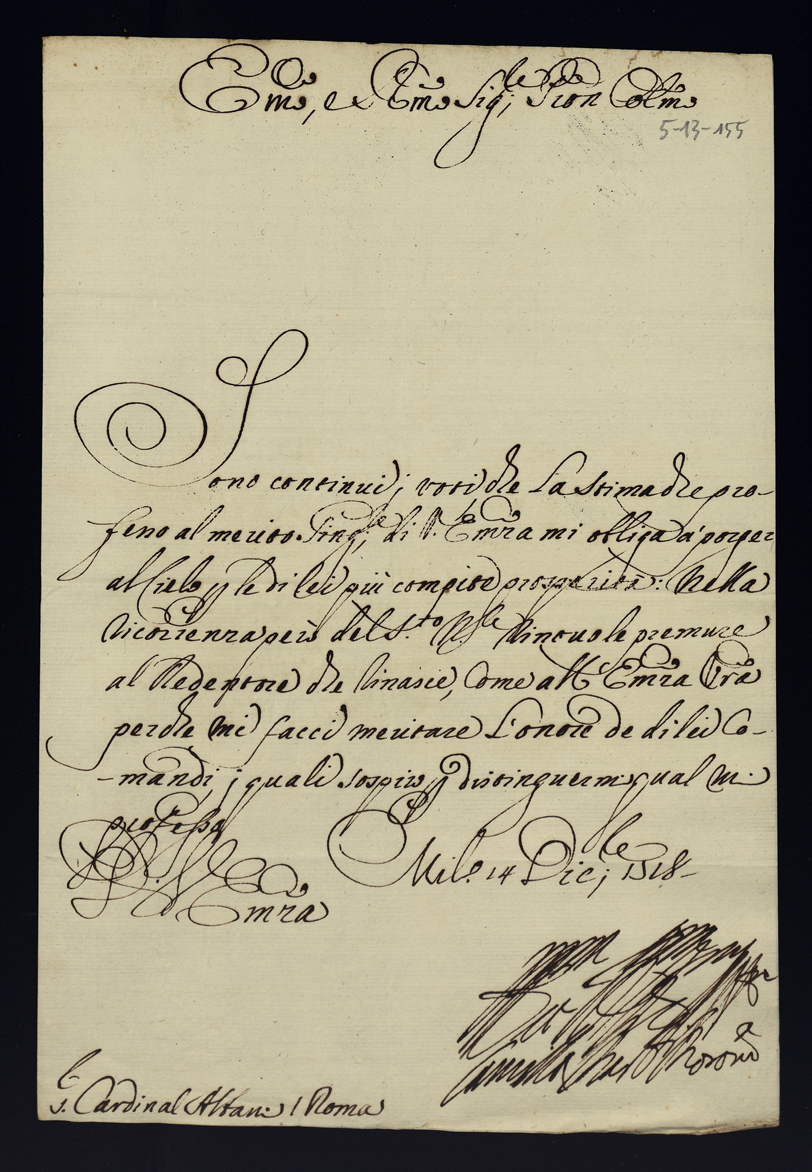 Emo, e Rmo Sigre Pron Colmo
5-13-155
Sono continui i voti, che La stima che pro-
fesso al merito Singre di V. Emza mi obliga à porger
al Cielo p le di lei più compite prosperità: Nella
ricorrenza però del S.to Nle rinuovo le premure
al Redentore che Rinasce, Come all' Emza Vra
perche mi facci meritare L'onore de di lei Co-
-mandi, i quali sospiro p distinguermi qual mi
professo
D. V. Emza
Mil.o 14 Dicre 1718-
S. Cardinal Albani / Roma